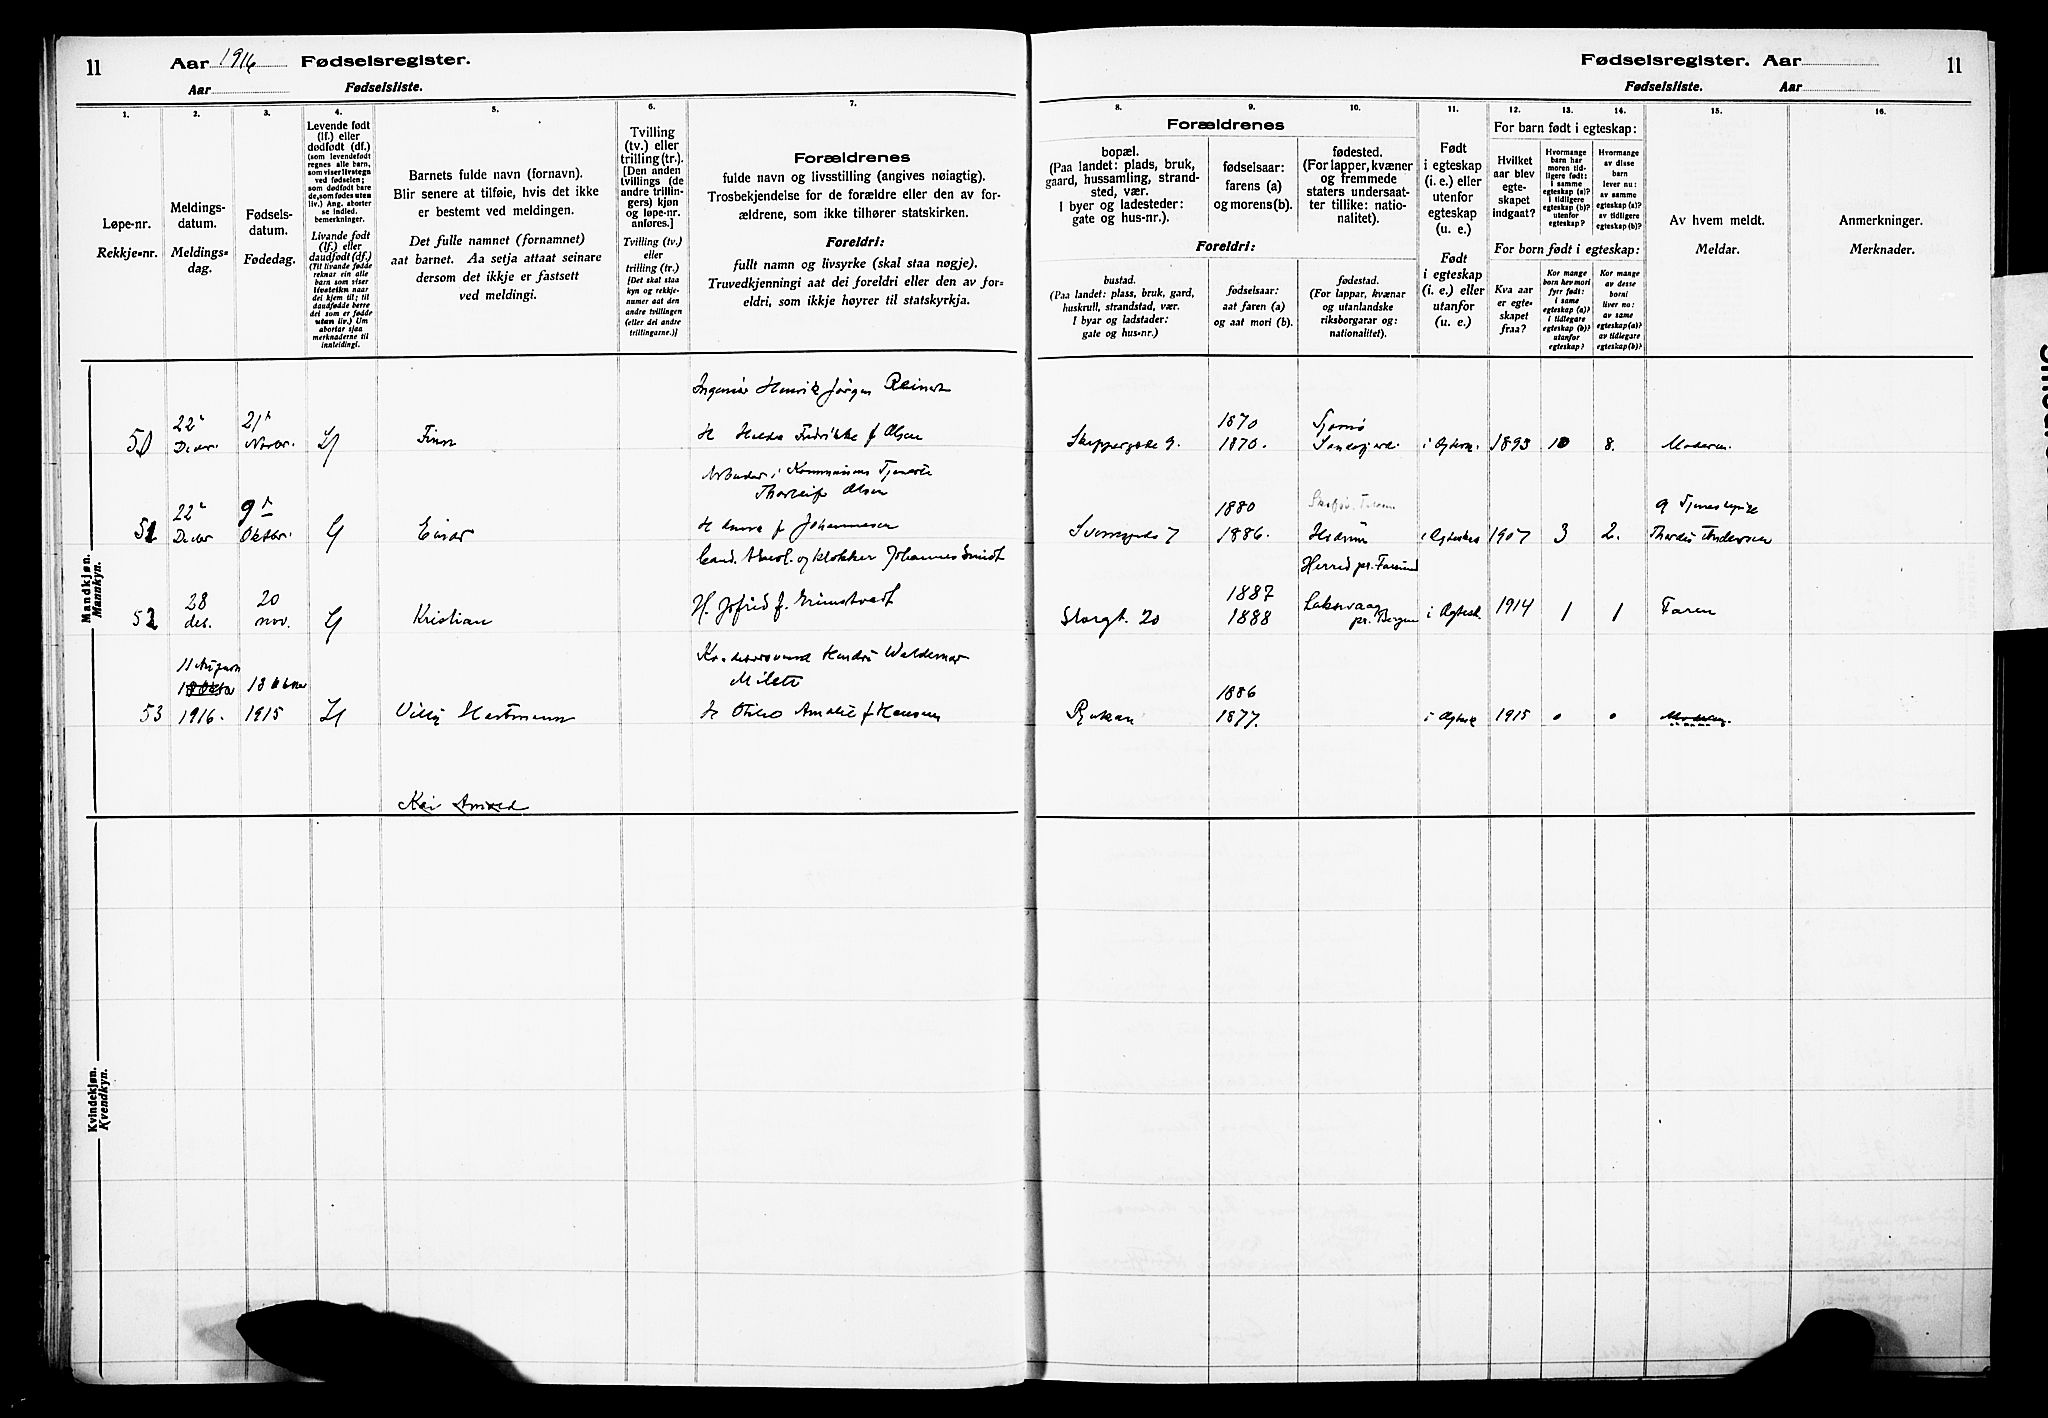 11
Aar 1916 Fødselsregister.
Aar Fødselsliste.
1.
Løpe-nr.
Rekkje-nr.
2.
Meldings-
datum.
Meldings-
dag.
3.
Fødsels-
datum.
Fødedag.
4.
Levende født
(lf.) eller
dødfødt (df.)
(som levendefødt
regnes alle barn,
som viser livstegn
ved fødselen;
som dødfødt bare
de, som fødes uten
liv.) Ang. aborter
se indled.
bemerkninger.
Livande født
(lf.) eller
daudfødt (df.)
(Til livande fødde
reknar ein alle
barn som viser
livsteikn naar
dei kjem til; til
daudfødde berre
dei som er fødde
utan liv.) Um
abortar sjaa
merknaderne til
innleidingi.
5.
Barnets fulde navn (fornavn).
Blir senere at tilføie, hvis det ikke
er bestemt ved meldingen.
Det fulle namnet (fornamnet)
aat barnet. Aa setja attaat seinare
dersom det ikkje er fastsett
ved meldingi.
6.
Tvilling
(tv.) eller
trilling (tr.).
[Den anden
tvillings (de
andre trillin-
gers) kjøn
og løpe-nr.
anføres.]
Tvilling (tv.)
eller
trilling (tr.)
[Det skal staa
kyn og rekkje-
numer aat den
andre tvillingen
(eller dei andre
trillingarne.)]
7.
Forældrenes
fulde navn og livsstilling (angives nøiagtig).
Trosbekjendelse for de forældre eller den av for-
ældrene, som ikke tilhører statskirken.
Foreldri:
fullt namn og livsyrke (skal staa nøgje).
Truvedkjenningi aat dei foreldri eller den av for-
eldri, som ikkje høyrer til statskyrkja.
Mandkjøn.
Mannkyn.
Ingeniør Henrik Jörgen Reinert
50
22
Decbr.
21
Novbr.
Lf
Finn
H Hulda Fredrikke f Olsen
Arbeider i Kommunens Tjeneste
Thorleif Olsen
51
22
Decbr
9
Oktbr.
Lf
Einar
H Anna f Johannesen
Cand. theol. og klokker Johannes Smidt
52
28
des.
20
nov.
Lf
Kristian
H. Jofrid f. Grimstvedt
Waldemar
53
11 August
1916.
18 Oktbr
1915
Lf
Villy Hartmann
H Otilie Amalie f Hansen
Kai Amved
Kvindekjøn.
Kvendkyn.
Fødselsregister. Aar 11
Fødselsliste. Aar
Forældrenes
8.
bopæl.
(Paa landet: plads, bruk,
gaard, hussamling, strand-
sted, vær.
I byer og ladesteder:
gate og hus-nr.).
9.
fødselsaar:
farens (a)
og morens (b).
10.
fødested.
(For lapper, kvæner
og fremmede
staters undersaat-
ter tillike: natio-
nalitet).
Foreldri:
bustad.
(Paa landet: plass, bruk, gard,
huskrull, strandstad, vær.
I byar og ladstader:
gate og hus-nr.)
fødselsaar:
aat faren (a)
og aat mori (b).
fødestad.
(For lappar, kvænar
og utanlandske
riksborgarar og:
nationalitet).
11.
Født
i egteskap
(i. e.) eller
utenfor
egteskap
(u. e.)
Født
i egteskap
(i. e.) eller
utanfor
(u. e.)
For barn født i egteskap:
12.
Hvilket
aar blev
egte-
skapet
indgaat?
13.
Hvormange
barn har
moren tid-
ligere født:
i samme
egteskap (a)?
i tidligere
egteskap (b)?
utenfor
egteskap?
14.
Hvormange
av disse
barn
lever nu:
av samme
egteskap (a)?
av tidligere
egteskap (b)?
For born født i egteskap:
Kva aar
er egte-
skapet
fraa?
Kor mange
born hev mori
fyrr født:
i same
egteskap (a)?
i tidlegare
egteskap (b)?
utanfor
egteskap?
Kor mange
av desse
borni
liver no:
av same
egteskap (a)?
av tidlegare
egteskap (b)?
15.
Av hvem meldt.
Meldar.
16.
Anmerkninger.
Merknader.
Skippergate 9.
1870
1870.
Tjømø
Sandefjord
i Egtesk.
1893
10
8.
Moderen
Svensgade 7
1880
1886.
Hidrø
i Egteskab
1907
3
2.
Herred pr. Farsund
Storgt. 20
1887
1888
Laksevaag
pr. Bergen
i Egtesk.
1914
1
1
Faren
Rjukan
1886
1877.
i Egtesk
1915
0
0
Moderen.